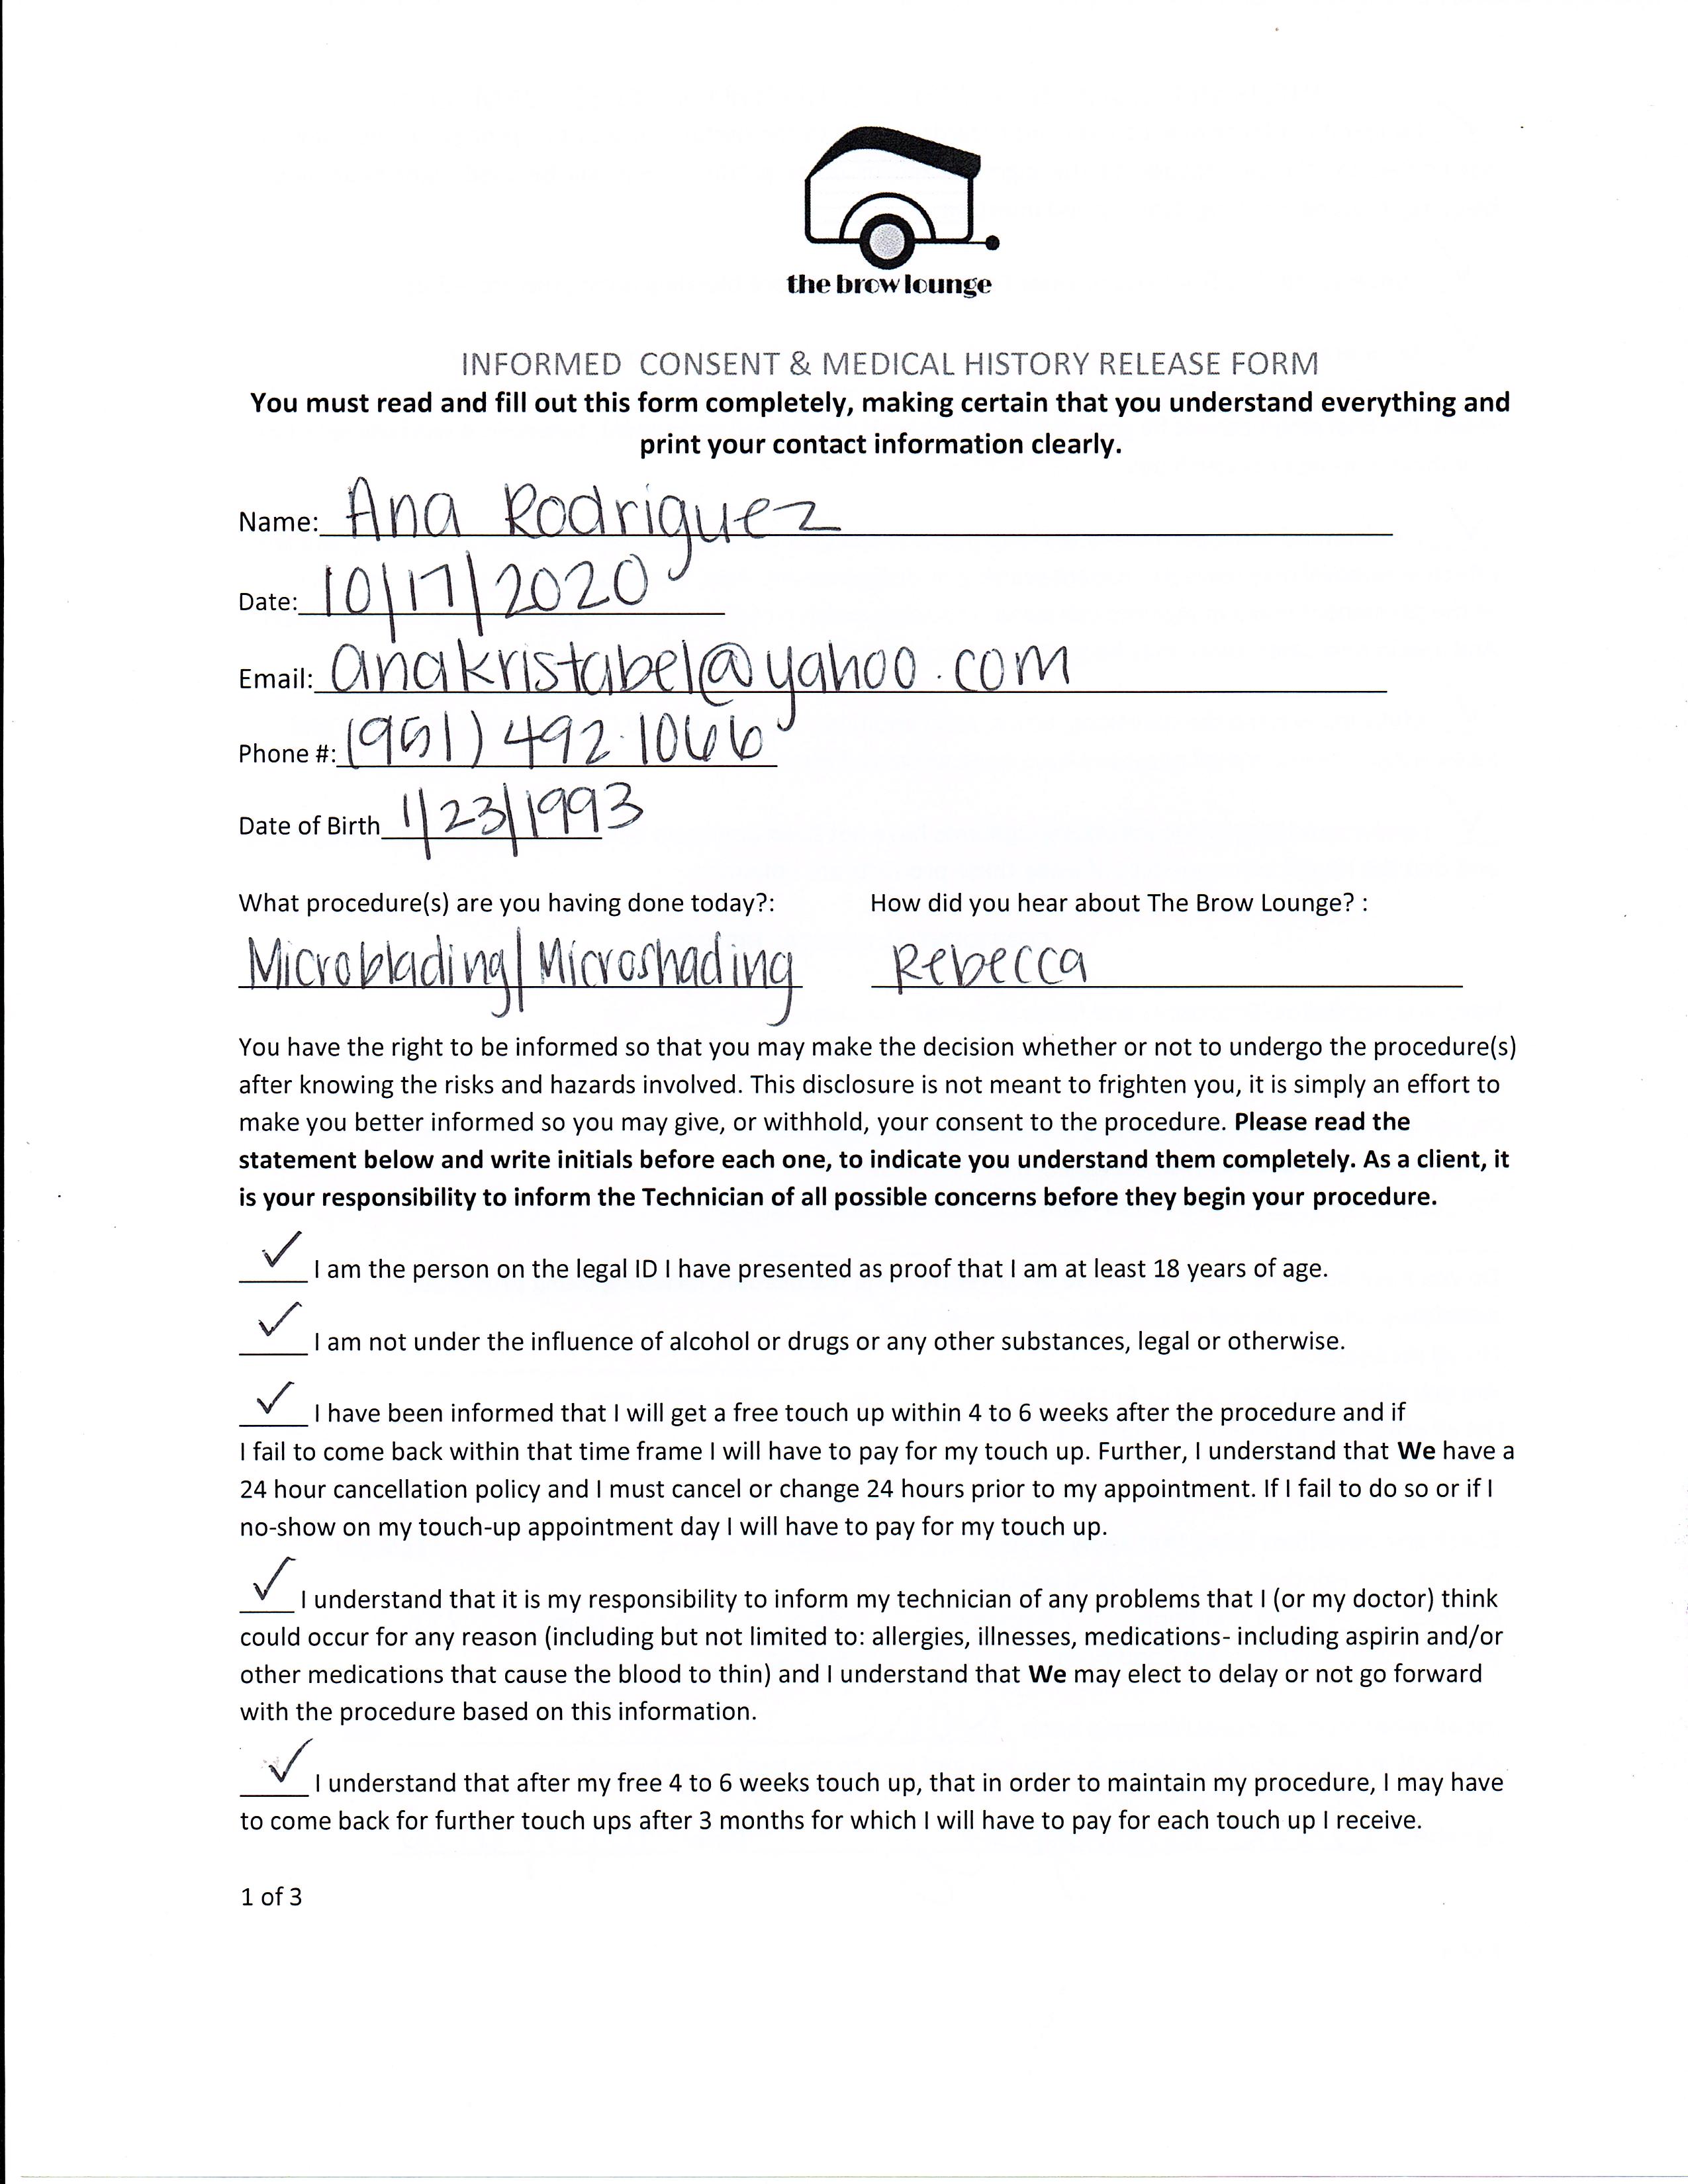 the brow lounge
INFORMED CONSENT & MEDICAL HISTORY RELEASE FORM
You must read and fill out this form completely, making certain that you understand everything and
print your contact information clearly.
Name: Ana Rodriguez
Date: 10/17/2020
Email: anakristabel@yahoo.com
Phone #: (951) 492.1066
Date of Birth 1/23/1993
What procedure(s) are you having done today?: How did you hear about The Brow Lounge? :
Microblading/Microshading Rebecca
You have the right to be informed so that you may make the decision whether or not to undergo the procedure(s)
after knowing the risks and hazards involved. This disclosure is not meant to frighten you, it is simply an effort to
make you better informed so you may give, or withhold, your consent to the procedure. Please read the
statement below and write initials before each one, to indicate you understand them completely. As a client, it
is your responsibility to inform the Technician of all possible concerns before they begin your procedure.
✓ I am the person on the legal ID I have presented as proof that I am at least 18 years of age.
✓ I am not under the influence of alcohol or drugs or any other substances, legal or otherwise.
✓ I have been informed that I will get a free touch up within 4 to 6 weeks after the procedure and if
I fail to come back within that time frame I will have to pay for my touch up. Further, I understand that We have a
24 hour cancellation policy and I must cancel or change 24 hours prior to my appointment. If I fail to do so or if I
no-show on my touch-up appointment day I will have to pay for my touch up.
✓ I understand that it is my responsibility to inform my technician of any problems that I (or my doctor) think
could occur for any reason (including but not limited to: allergies, illnesses, medications- including aspirin and/or
other medications that cause the blood to thin) and I understand that We may elect to delay or not go forward
with the procedure based on this information.
✓ I understand that after my free 4 to 6 weeks touch up, that in order to maintain my procedure, I may have
to come back for further touch ups after 3 months for which I will have to pay for each touch up I receive.
1 of 3